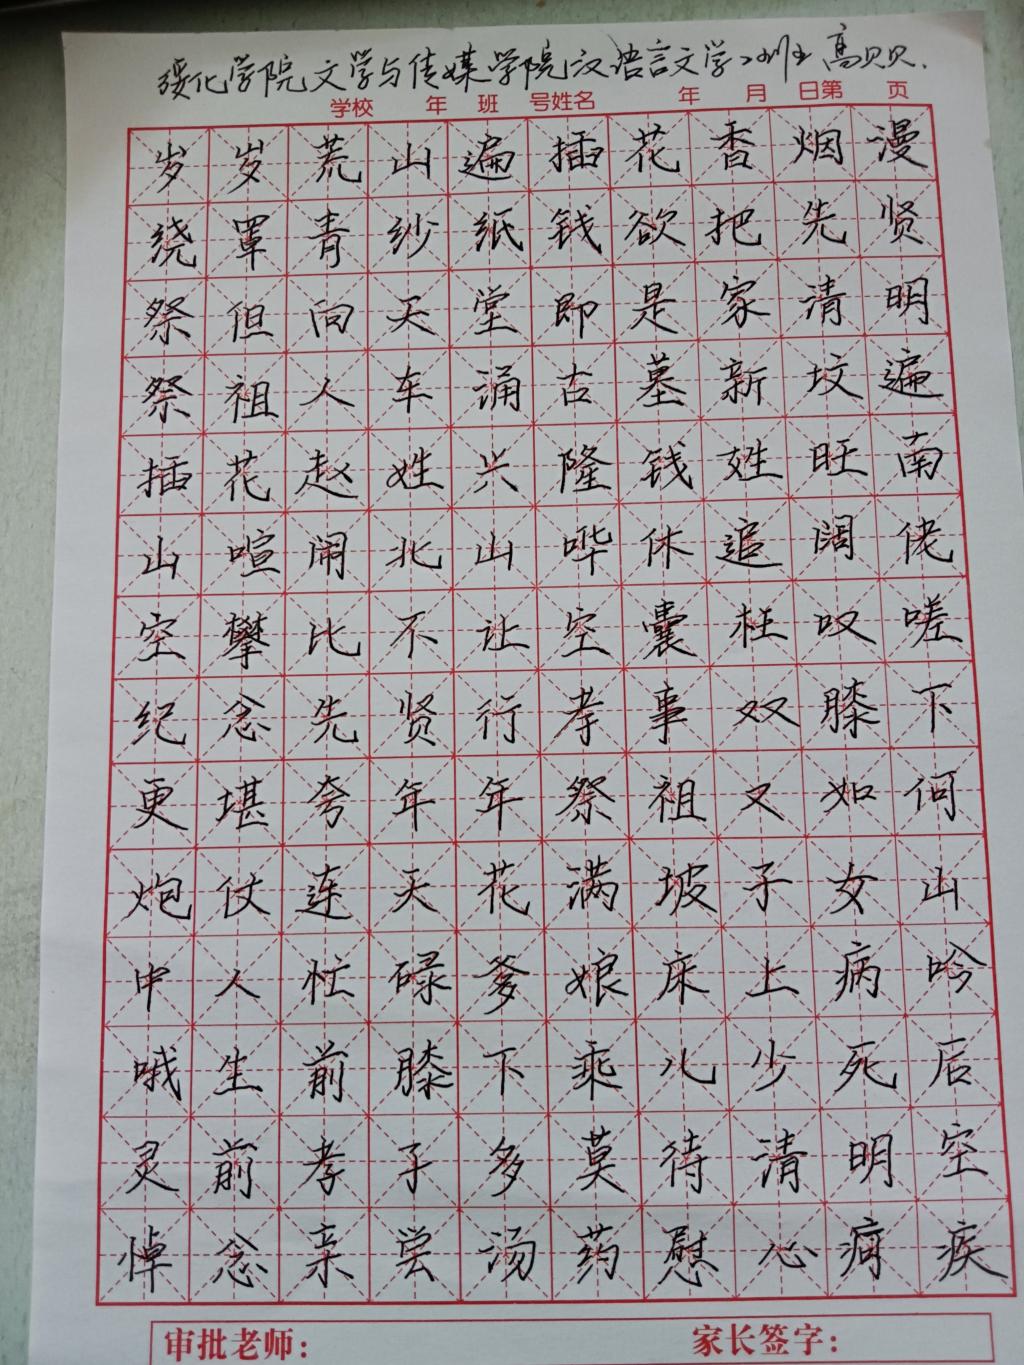 绥化学院文学与传媒学院汉语言文学 高贝贝.
学校 年 班 号姓名 年 月 日第 页
岁岁荒山遍插花香烟漫
绕罩青纱纸钱欲把先贤
祭但向天堂即是家清明
祭祖人车涌古墓新坟遍
插花赵姓兴隆钱姓旺南
山喧闹北山哗休追阔佬
空攀比不让空囊枉叹嗟
纪念先贤行孝事双膝下
更堪夸年年祭祖又如何
炮仗连天花满坡子女山
中人忙碌爹娘床上病吟
哦生前膝下乘儿少死后
灵前孝子多莫待清明空
悼念亲尝汤药慰心痾疾
审批老师： 家长签字：